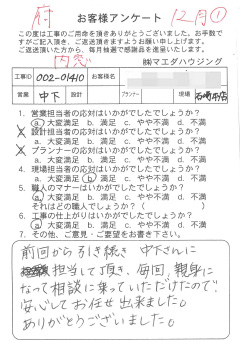 府
お客様アンケート
12月①
この度は工事のご用命を頂きありがとうございました。お手数で
すがご記入頂き、ご返送頂きますようお願い申し上げます。
ご返送頂いた方から、毎月抽選で感謝品を進呈いたします。
内窓
㈱マエダハウジング
工事ID 002-01410 お客様名
営業 中下 設計 プランナー 現場
1. 営業担当者の応対はいかがでしたでしょうか?
a 大変満足 b. 満足 c. やや不満 d. 不満
2. 設計担当者の応対はいかがでしたでしょうか?
a. 大変満足 b. 満足 c. やや不満 d. 不満
3. プランナーの応対はいかがでしたでしょうか?
a. 大変満足 b. 満足 c. やや不満 d. 不満
4. 現場担当者の応対はいかがでしたでしょうか?
a. 大変満足 b 満足 c. やや不満 d. 不満
5. 職人のマナーはいかがでしたでしょうか?
a 大変満足 b. 満足 c. やや不満 d. 不満
それはどの職人でしょうか? ( )
6. 工事の仕上がりはいかがでしたでしょうか?
a 大変満足 b. 満足 c. やや不満 d. 不満
7. その他、ご意見・ご要望をお書き下さい。
前回から引き続き 中下さんに
担当して頂き、毎回、親身に
なって相談に乗っていただけたので
安心してお任せ出来ました。
ありがとうございました。